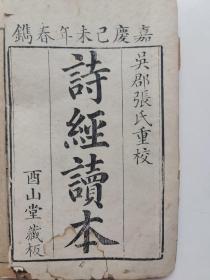 嘉慶己未年春鐫
吳郡張氏重校
詩經讀本
酉山堂藏板